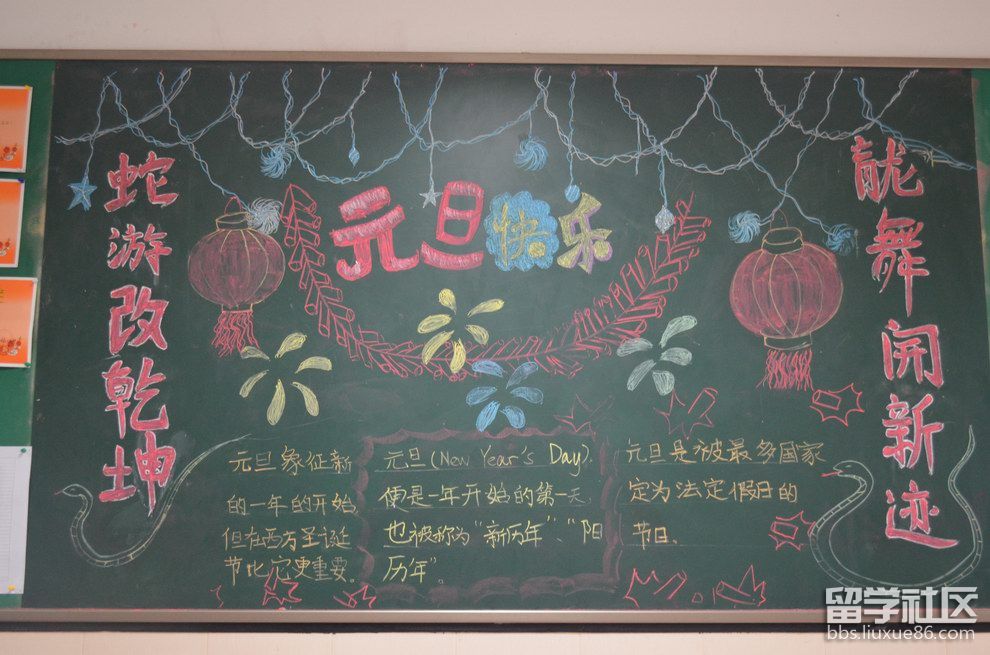 元旦快乐
龍舞开新迹
蛇游改乾坤
元旦象征新
的一年的开始,
但在西方圣诞
节比它更重要。
元旦(New Year's Day),
便是一年开始的第一天
也被称为“新历年”、“阳
历年”。
元旦是被最多国家
定为法定假日的
节日。
留学社区
bbs.liuxue86.com